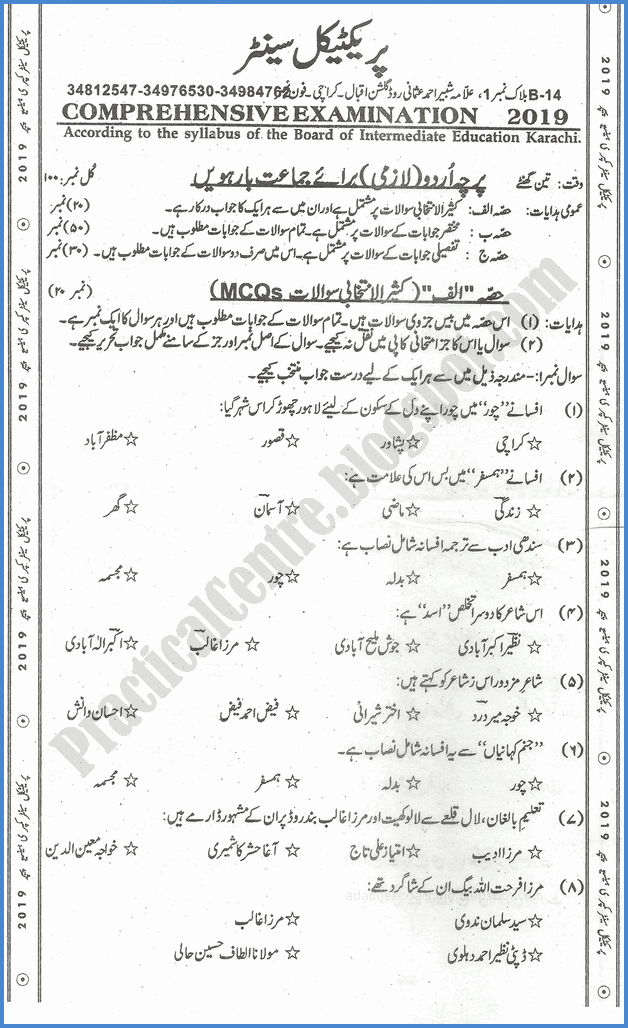 پریکٹیکل سینٹر
B-14 بلاک نمبر 1، علامہ شبیر احمد عثمانی روڈ گلشن اقبال۔ کراچی۔ فون نمبر 34984762-34976530-34812547
COMPREHENSIVE EXAMINATION 2019
According to the syllabus of the Board of Intermediate Education Karachi.
وقت: تین گھنٹے پرچہ اُردو (لازمی) برائے جماعت بارہویں کل نمبر: ۱۰۰
عمومی ہدایات: حصّہ الف: کثیر الانتخابی سوالات پر مشتمل ہے اور ان میں سے ہر ایک کا جواب درکار ہے۔ (۲۰) نمبر
حصّہ ب: مختصر جوابات کے سوالات پر مشتمل ہے۔ تمام سوالات کے جوابات مطلوب ہیں۔ (۵۰) نمبر
حصّہ ج: تفصیلی جوابات کے سوالات پر مشتمل ہے۔ اس میں صرف دو سوالات کے جوابات مطلوب ہیں۔ (۳۰) نمبر
حصّہ "الف" (کثیر الانتخابی سوالات MCQs) (نمبر ۲۰)
ہدایات: (۱) اس حصّہ میں بیس جزوی سوالات ہیں۔ تمام سوالات کے جوابات مطلوب ہیں اور ہر سوال کا ایک نمبر ہے۔
(۲) سوال یا اس کا جز امتحانی کاپی میں نقل نہ کیجیے۔ سوال کے اصل نمبر اور جز کے سامنے مکمل جواب تحریر کیجیے۔
سوال نمبر ۱:- مندرجہ ذیل میں سے ہر ایک کے لیے درست جواب منتخب کیجیے۔
(۱) افسانے ”چور“ میں چور اپنے دل کے سکون کے لیئے لاہور چھوڑ کر اس شہر گیا:
☆ کراچی ☆ پشاور ☆ قصور ☆ مظفر آباد
(۲) افسانے ”ہمسفر“ میں بس اس کی علامت ہے:
☆ زندگی ☆ ماضی ☆ آسمان ☆ گھر
(۳) سندھی ادب سے ترجمہ افسانہ شامل نصاب ہے:
☆ ہمسفر ☆ بدلہ ☆ چور ☆ مجسمہ
(۴) اس شاعر کا دوسرا تخلص ”اسد“ ہے:
☆ نظیر اکبر آبادی ☆ جوش ملیح آبادی ☆ مرزا غالب ☆ اکبر الہ آبادی
(۵) شاعرِ مزدور اس زشاعر کو کہتے ہیں:
☆ خوجہ میر درد ☆ اختر شیرانی ☆ فیض احمد فیض ☆ احسان دانش
(۶) ”جنم کہانیاں“ سے یہ افسانہ شامل نصاب ہے۔
☆ چور ☆ بدلہ ☆ ہمسفر ☆ مجسمہ
(۷) تعلیمِ بالغان، لال قلعے سے لالوکھیت اور مرزا غالب بندر روڈ پر ان کے مشہور ڈارمے ہیں:
☆ مرزا ادیب ☆ امتیاز علی تاج ☆ آغا حشر کاشمیری ☆ خواجہ معین الدین
(۸) مرزا فرحت اللہ بیگ ان کے شاگرد تھے:
☆ سید سلمان ندوی ☆ مرزا غالب
☆ ڈپٹی نظیر احمد دہلوی ☆ مولانا الطاف حسین حالی
PracticalCentre.blogspot.com
2019
2019
2019
2019
2019
2019
2019
2019